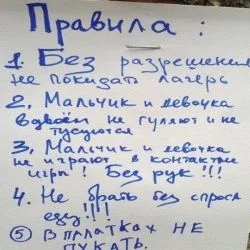 Правила:
1. Без разрешения
не покидать лагерь
2. Мальчик и девочка
вдвоём не гуляют и не
тусуются
3. Мальчик и девочка
не играют в контактн
игры! Без рук!!!
4. Не брать без спроса
еду!!!
5 В ПАЛАТКАХ НЕ
ПУКАТЬ.